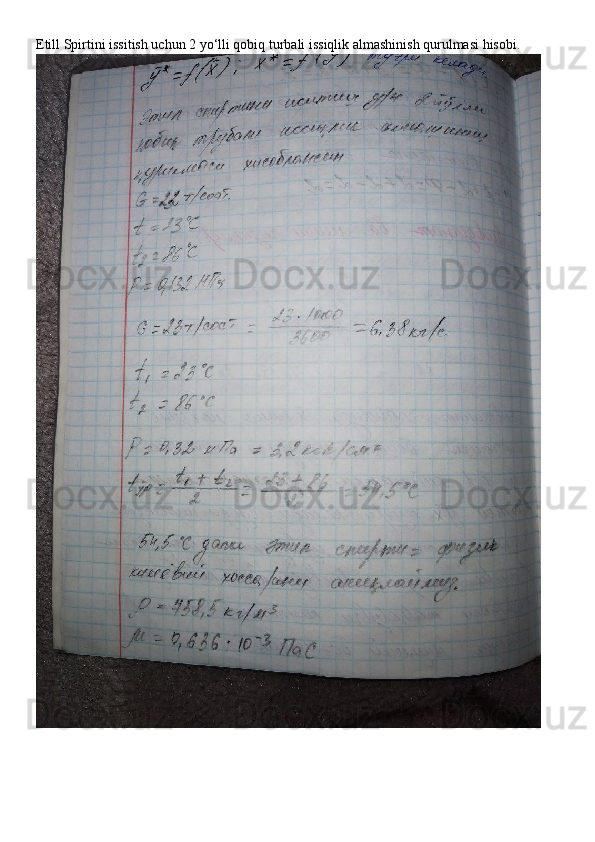 Etill Spirtini issitish uchun 2 yo‘lli qobiq turbali issiqlik almashinish qurulmasi hisobi.
y* = f(x); x* = f(y) тўғри келади.
Этил спиртини иситиш учун 2 йўлли
қобиқ трубали иссиқлик алмашиниш
қурилмаси хисоблансин
G = 22 т/соат.
t = 23°C
t₂ = 86°C
P = 0,132 МПа
G = 23 т/соат = 23·1000 / 3600 = 6,38 кг/с.
t₁ = 23°C
t₂ = 86°C
P = 0,32 мПа = 3,2 кгк/см²
tўр = t₁ + t₂ / 2 = 23 + 86 / 2 = 54,5°C
54,5°C даги этил спирти= физик
кимёвий хоссаларини аниқлаймиз.
ρ = 758,5 кг/м³
μ = 0,636·10⁻³ ПаС